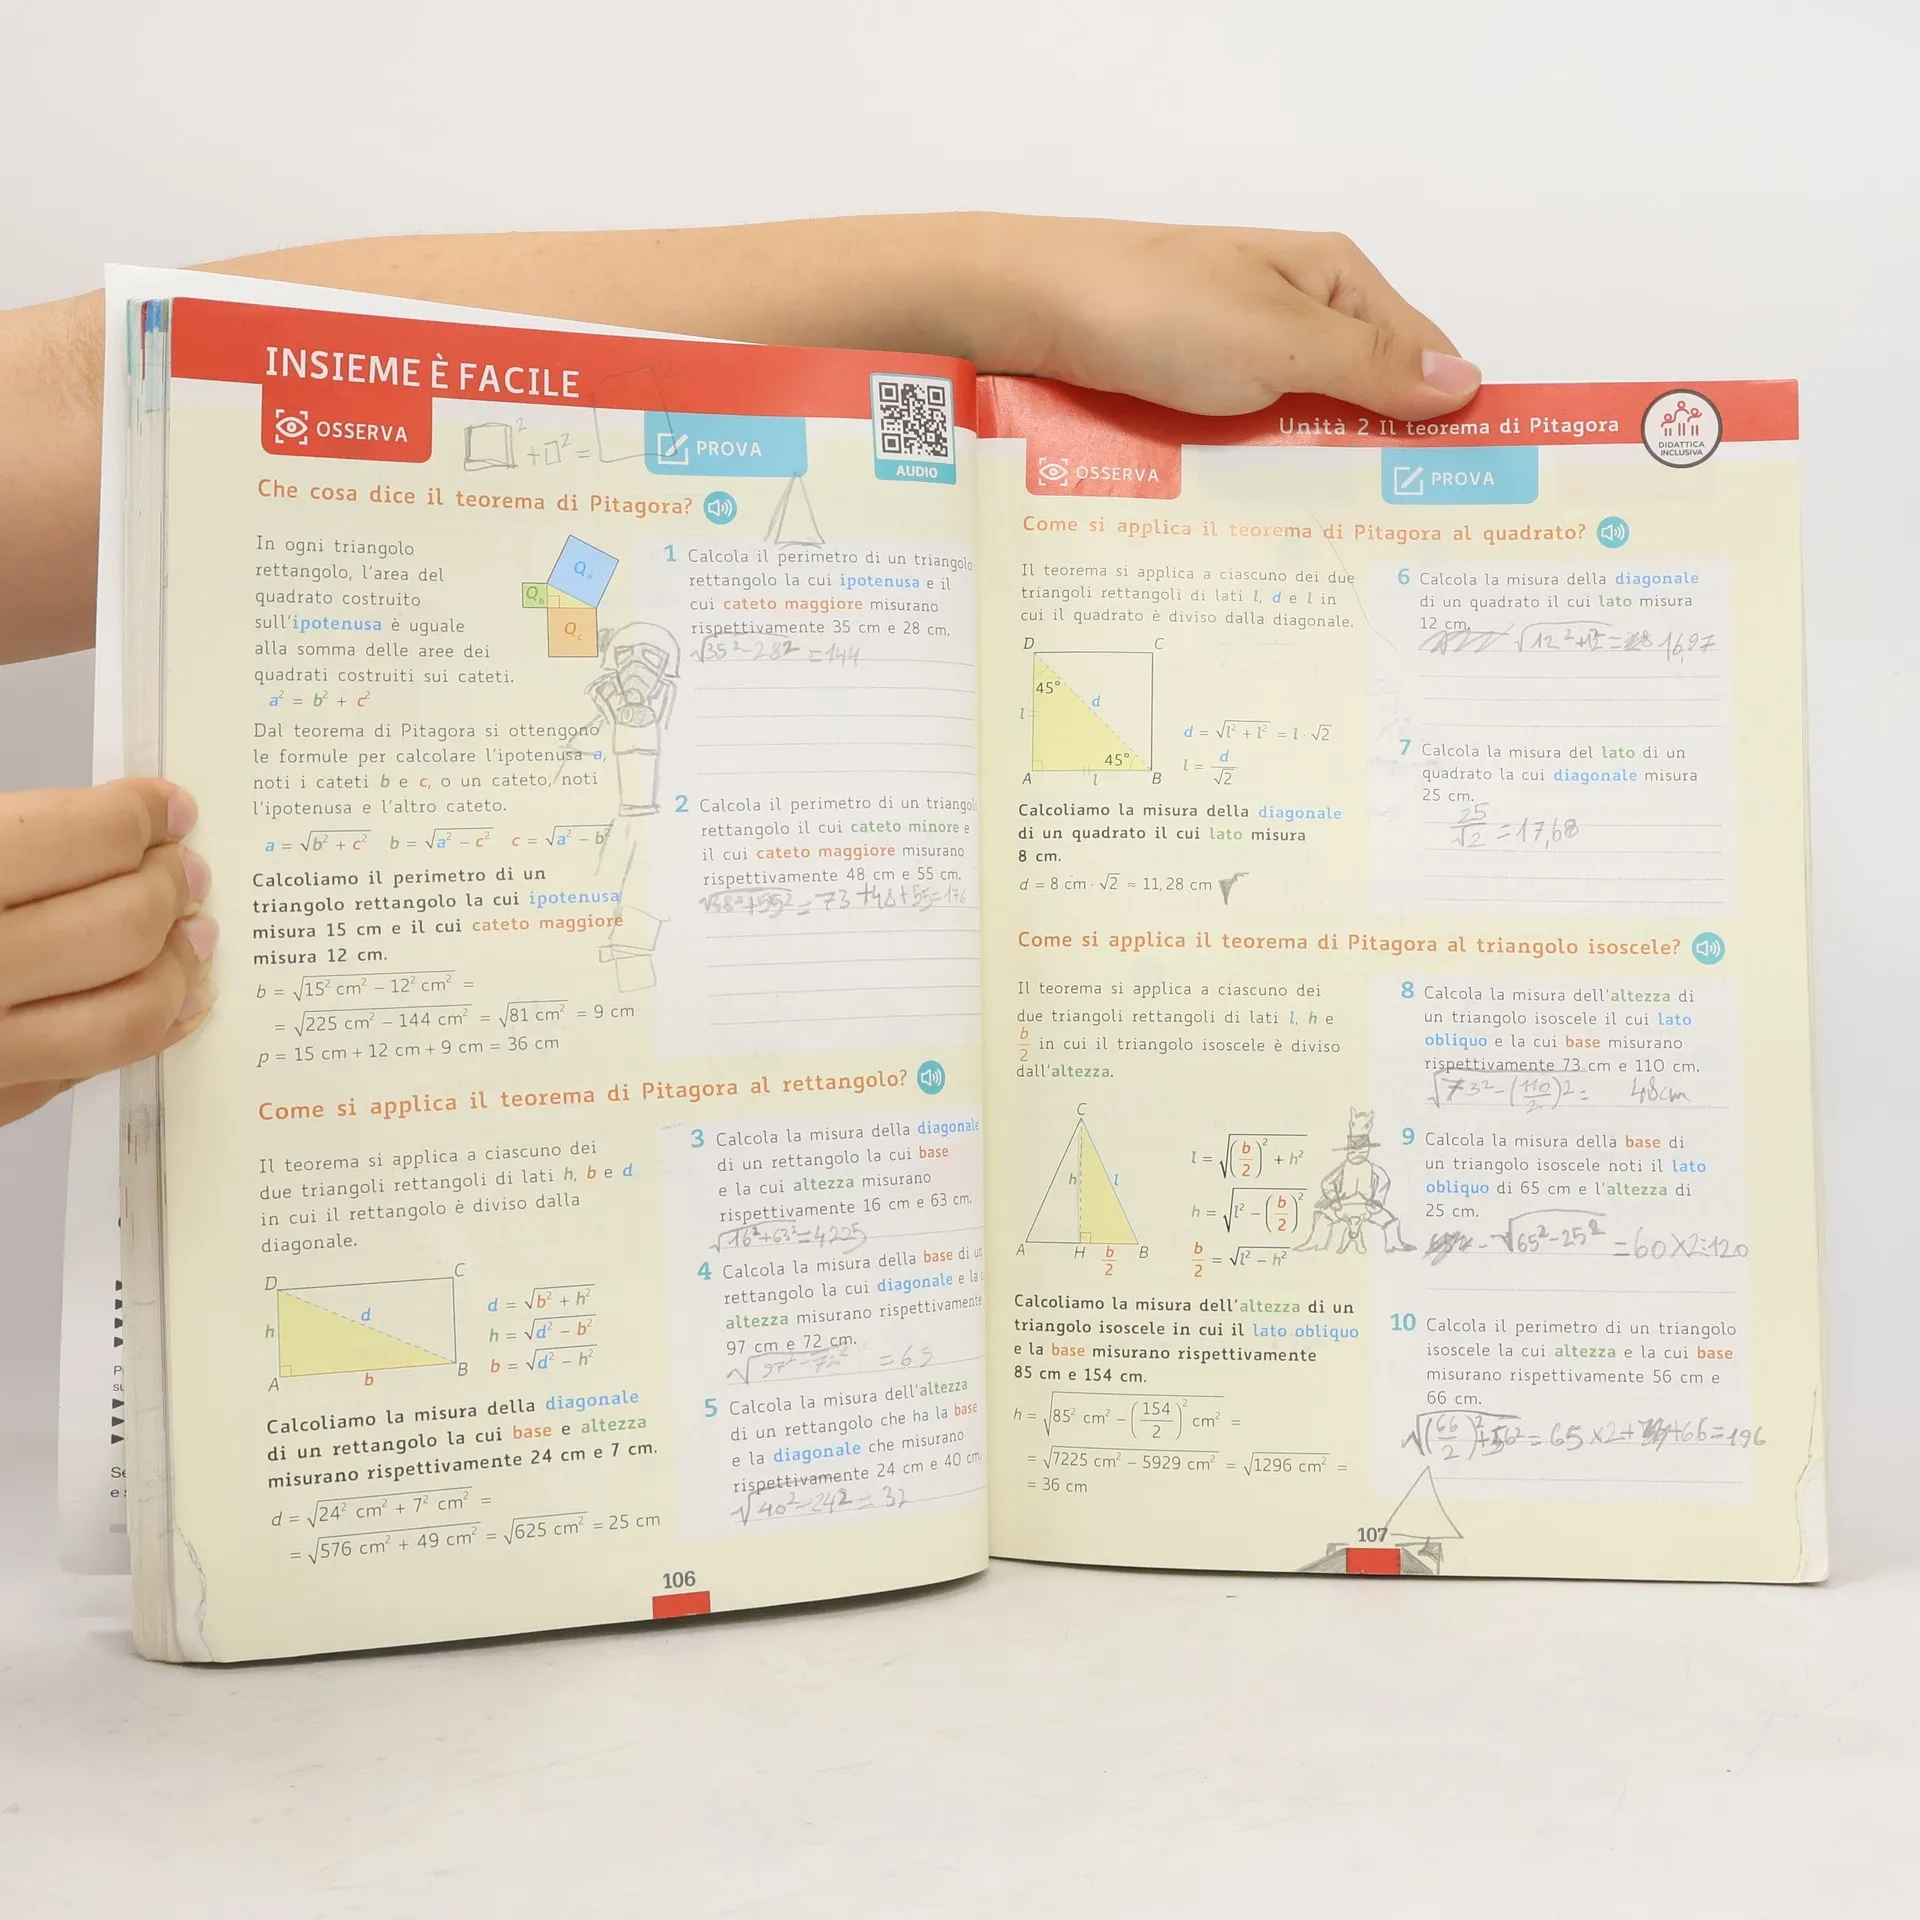 INSIEME È FACILE
OSSERVA
PROVA
AUDIO
Che cosa dice il teorema di Pitagora?
In ogni triangolo
rettangolo, l'area del
quadrato costruito
sull'ipotenusa è uguale
alla somma delle aree dei
quadrati costruiti sui cateti.
a² = b² + c²
Qa
Qb
Qc
Dal teorema di Pitagora si ottengono
le formule per calcolare l'ipotenusa a,
noti i cateti b e c, o un cateto, noti
l'ipotenusa e l'altro cateto.
a = √b² + c² b = √a² − c² c = √a² − b²
Calcoliamo il perimetro di un
triangolo rettangolo la cui ipotenusa
misura 15 cm e il cui cateto maggiore
misura 12 cm.
b = √15² cm² − 12² cm² =
= √225 cm² − 144 cm² = √81 cm² = 9 cm
p = 15 cm + 12 cm + 9 cm = 36 cm
1 Calcola il perimetro di un triangolo
rettangolo la cui ipotenusa e il
cui cateto maggiore misurano
rispettivamente 35 cm e 28 cm.
√35²-28² = 144
2 Calcola il perimetro di un triangol
rettangolo il cui cateto minore e
il cui cateto maggiore misurano
rispettivamente 48 cm e 55 cm.
= 73 +48+55=176
Come si applica il teorema di Pitagora al rettangolo?
Il teorema si applica a ciascuno dei
due triangoli rettangoli di lati h, b e d
in cui il rettangolo è diviso dalla
diagonale.
D C
h d
A b B
d = √b² + h²
h = √d² − b²
b = √d² − h²
Calcoliamo la misura della diagonale
di un rettangolo la cui base e altezza
misurano rispettivamente 24 cm e 7 cm.
d = √24² cm² + 7² cm² =
= √576 cm² + 49 cm² = √625 cm² = 25 cm
3 Calcola la misura della diagonale
di un rettangolo la cui base
e la cui altezza misurano
rispettivamente 16 cm e 63 cm.
√16²+63²=4225
4 Calcola la misura della base di un
rettangolo la cui diagonale e la c
altezza misurano rispettivamente
97 cm e 72 cm.
√97²-72² = 65
5 Calcola la misura dell'altezza
di un rettangolo che ha la base
e la diagonale che misurano
rispettivamente 24 cm e 40 cm.
√40²-24² = 32
106
Unità 2 Il teorema di Pitagora
DIDATTICA
INCLUSIVA
OSSERVA
PROVA
Come si applica il teorema di Pitagora al quadrato?
Il teorema si applica a ciascuno dei due
triangoli rettangoli di lati l, d e l in
cui il quadrato è diviso dalla diagonale.
D C
45° d
l
45°
A l B
d = √l² + l² = l · √2
l = d/√2
Calcoliamo la misura della diagonale
di un quadrato il cui lato misura
8 cm.
d = 8 cm · √2 ≈ 11,28 cm
6 Calcola la misura della diagonale
di un quadrato il cui lato misura
12 cm.
16,97
7 Calcola la misura del lato di un
quadrato la cui diagonale misura
25 cm.
25/√2 = 17,68
Come si applica il teorema di Pitagora al triangolo isoscele?
Il teorema si applica a ciascuno dei
due triangoli rettangoli di lati l, h e
b/2 in cui il triangolo isoscele è diviso
dall'altezza.
C
h l
A H b/2 B
l = √(b/2)² + h²
h = √l² − (b/2)²
b/2 = √l² − h²
Calcoliamo la misura dell'altezza di un
triangolo isoscele in cui il lato obliquo
e la base misurano rispettivamente
85 cm e 154 cm.
h = √85² cm² − (154/2)² cm² =
= √7225 cm² − 5929 cm² = √1296 cm² =
= 36 cm
8 Calcola la misura dell'altezza di
un triangolo isoscele il cui lato
obliquo e la cui base misurano
rispettivamente 73 cm e 110 cm.
√73²-(110/2)²= 48cm
9 Calcola la misura della base di
un triangolo isoscele noti il lato
obliquo di 65 cm e l'altezza di
25 cm.
√65²-25² = 60×2=120
10 Calcola il perimetro di un triangolo
isoscele la cui altezza e la cui base
misurano rispettivamente 56 cm e
66 cm.
√(66/2)²+56² = 65×2+66=196
107